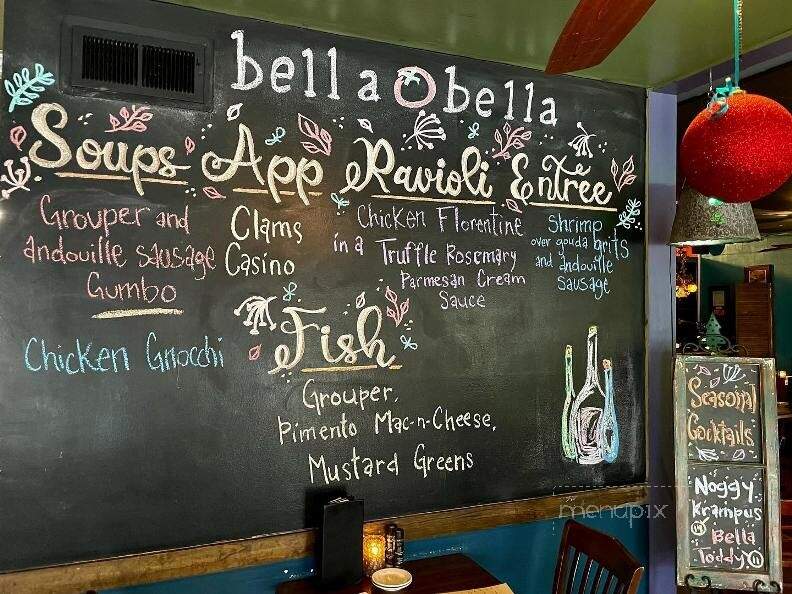 bella bella
Soups
Grouper and
andouille sausage
Gumbo
Chicken Gnocchi
App
Clams
Casino
Ravioli
Chicken Florentine
in a Truffle Rosemary
Parmesan Cream
Sauce
Entree
Shrimp
over gouda grits
and andouille
sausage
Fish
Grouper,
Pimento Mac-n-Cheese,
Mustard Greens
Seasonal
Cocktails
Noggy
Krampus
Bella
Toddy
menupix